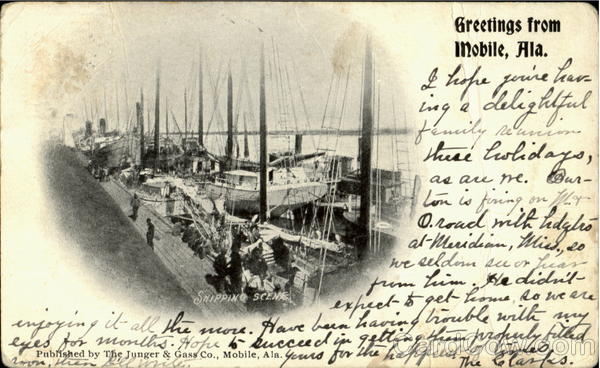 Greetings from
Mobile, Ala.
I hope you're hav-
ing a delightful
family reunion
these holidays,
as are we. Bur-
ton is firing on M & 
O. road with hdqtrs
at Meridian, Miss., so
we seldom see or hear
from him. He didn't
expect to get home, so we are
enjoying it all the more. Have been having trouble with my
eyes for months. Hope to succeed in getting them properly fitted
soon, then I'll write. Yours for the happiest
The Clarks.
SHIPPING SCENE
Published by The Junger & Gass Co., Mobile, Ala.
CardCow.com